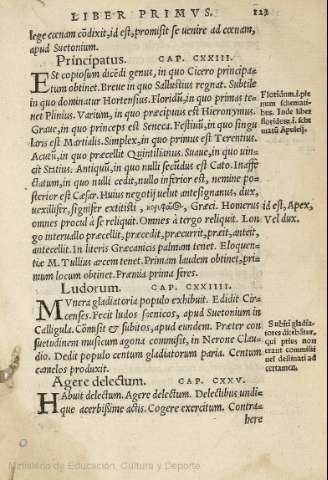 LIBER PRIMVS. 123
lege cœnam cõdixit, id est, promisit se venire ad cœnam,
apud Suetonium.
Principatus. CAP. CXXIII.
ESt copiosum dicẽdi genus, in quo Cicero principa-
tum obtinet. Breue in quo Sallustius regnat. Subtile
in quo dominatur Hortensius. Floridũ, in quo primas te-
net Plinius. Varium, in quo præcipuus est Hieronymus.
Graue, in quo princeps est Seneca. Festiuũ, in quo singu
laris est Martialis. Simplex, in quo primus est Terentius.
Acutũ, in quo præcellit Quintilianus. Suaue, in quo vin-
cit Statius. Antiquũ, in quo nulli secũdus est Cato. Inaffe
ctatum, in quo nulli cedit, nullo inferior est, nemine po-
sterior est Cæsar. Huius negotij velut antesignanus, dux,
vexilifer, signifer extitisti, Græci. Homerus
omnes procul à se reliquit. Omnes à tergo reliquit. Lon
go interuallo præcellit, præcedit, præcurrit, præit, anteit,
antecellit. In literis Græcanicis palmam tenet. Eloquen-
tiæ M. Tullius arcem tenet. Primam laudem obtinet, pri-
mum locum obtinet. Præmia prima feres.
Floridum. i. ple
num schemati-
bus. Inde liber
floridorũ. i. sche
matũ Apuleij.
id est, Apex,
Vel dux.
Ludorum. CAP. CXXIIII.
MVnera gladiatoria populo exhibuit. Edidit Cir-
censes. Fecit ludos scænicos, apud Suetonium in
Calligula. Cõmisit & subitos, apud eundem. Præter con
suetudinem musicum agona commisit, in Nerone Clau-
dio. Dedit populo centum gladiatorum paria. Centum
canelos produxit.
Subiti gladia-
tores dicebãtur,
qui prius non
erant commissi
nec destinati ad
certamen.
Agere delectum. CAP. CXXV.
HAbuit delectum. Agere delectum. Delectibus undi-
que acerbissime actis. Cogere exercitum. Contra-
here
Ministerio de Educación, Cultura y Deporte